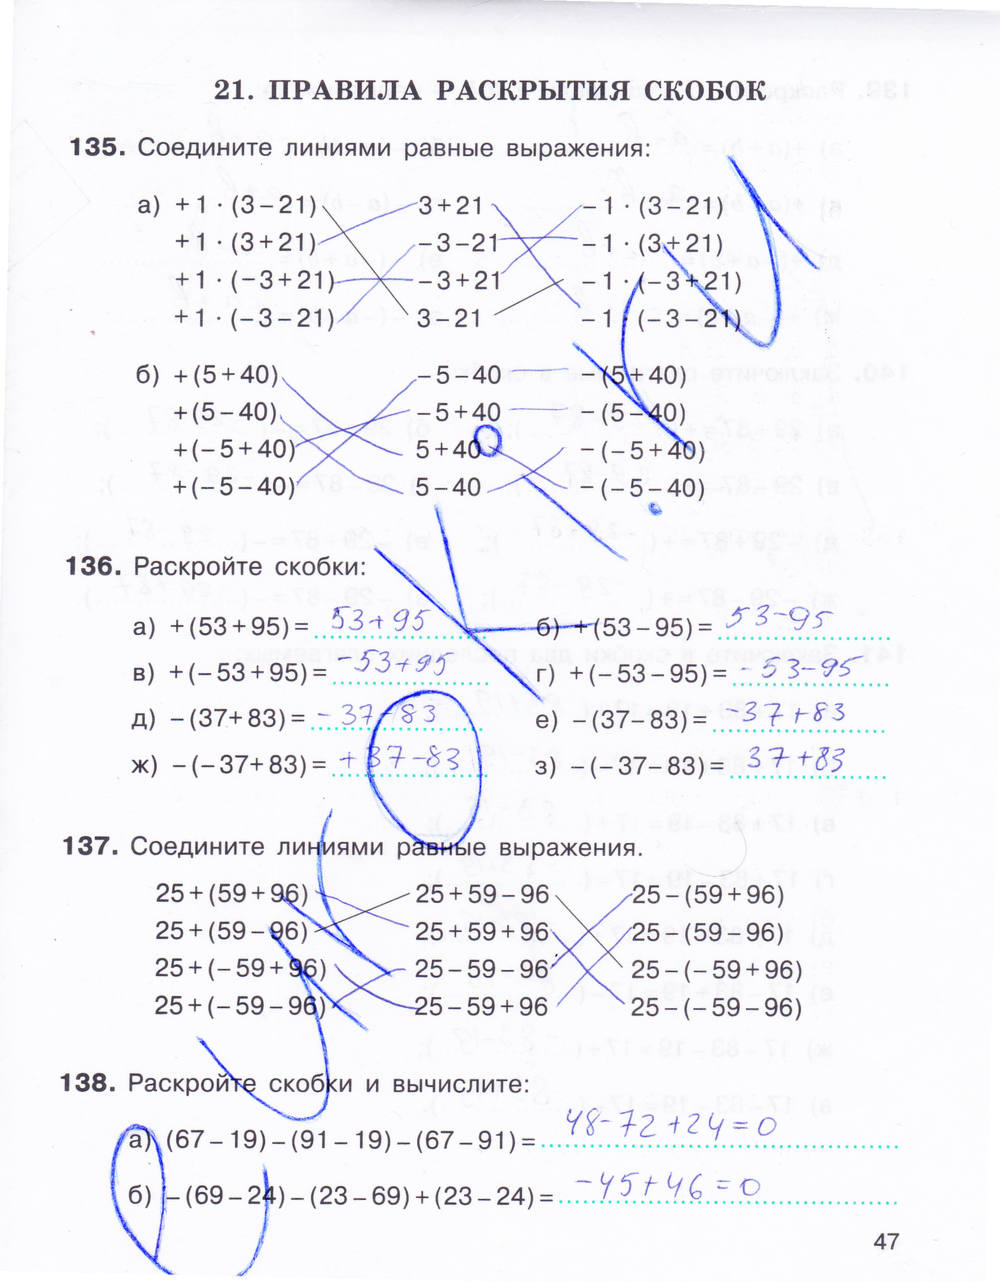 21. ПРАВИЛА РАСКРЫТИЯ СКОБОК
135. Соедините линиями равные выражения:
а) +1 · (3 – 21) 3 + 21 – 1 · (3 – 21)
+1 · (3 + 21) – 3 – 21 – 1 · (3 + 21)
+1 · (– 3 + 21) – 3 + 21 – 1 · (– 3 + 21)
+1 · (– 3 – 21) 3 – 21 – 1 · (– 3 – 21)
б) + (5 + 40) – 5 – 40 – (5 + 40)
+ (5 – 40) – 5 + 40 – (5 – 40)
+ (– 5 + 40) 5 + 40 – (– 5 + 40)
+ (– 5 – 40) 5 – 40 – (– 5 – 40)
136. Раскройте скобки:
а) + (53 + 95) = 53+95 б) + (53 – 95) = 53-95
в) + (– 53 + 95) = -53+95 г) + (– 53 – 95) = -53-95
д) – (37 + 83) = -37-83 е) – (37 – 83) = -37+83
ж) – (– 37 + 83) = +37-83 з) – (– 37 – 83) = 37+83
137. Соедините линиями равные выражения.
25 + (59 + 96) 25 + 59 – 96 25 – (59 + 96)
25 + (59 – 96) 25 + 59 + 96 25 – (59 – 96)
25 + (– 59 + 96) 25 – 59 – 96 25 – (– 59 + 96)
25 + (– 59 – 96) 25 – 59 + 96 25 – (– 59 – 96)
138. Раскройте скобки и вычислите:
а) (67 – 19) – (91 – 19) – (67 – 91) = 48-72+24=0
б) – (69 – 24) – (23 – 69) + (23 – 24) = -45+46=0
47